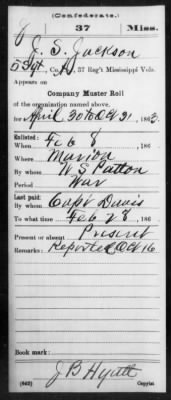 (Confederate.)
J 37 Miss.
J. S. Jackson
5 Sgt, Co. A, 37 Reg't Mississippi Vols.
Appears on
Company Muster Roll
of the organization named above,
for April 30 to Oct 31, 1863.
Enlisted:
When Feb 8, 186 .
Where Marion
By whom W S Patton
Period War
Last paid:
By whom Capt Davis
To what time Feb 28, 186 .
Present or absent Present
Remarks: Reported Oct 16
Book mark:
J B Hyatt
(642) Copyist.